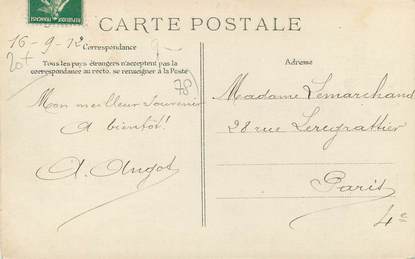 CARTE POSTALE
16-9-12
Correspondance
Tous les pays étrangers n'acceptent pas la
correspondance au recto. se renseigner à la Poste
Adresse
20+
78
Mon meilleur souvenir
A bientôt!
A. Angot
Madame Lemarchand
28 rue Leregrattier
Paris
4e